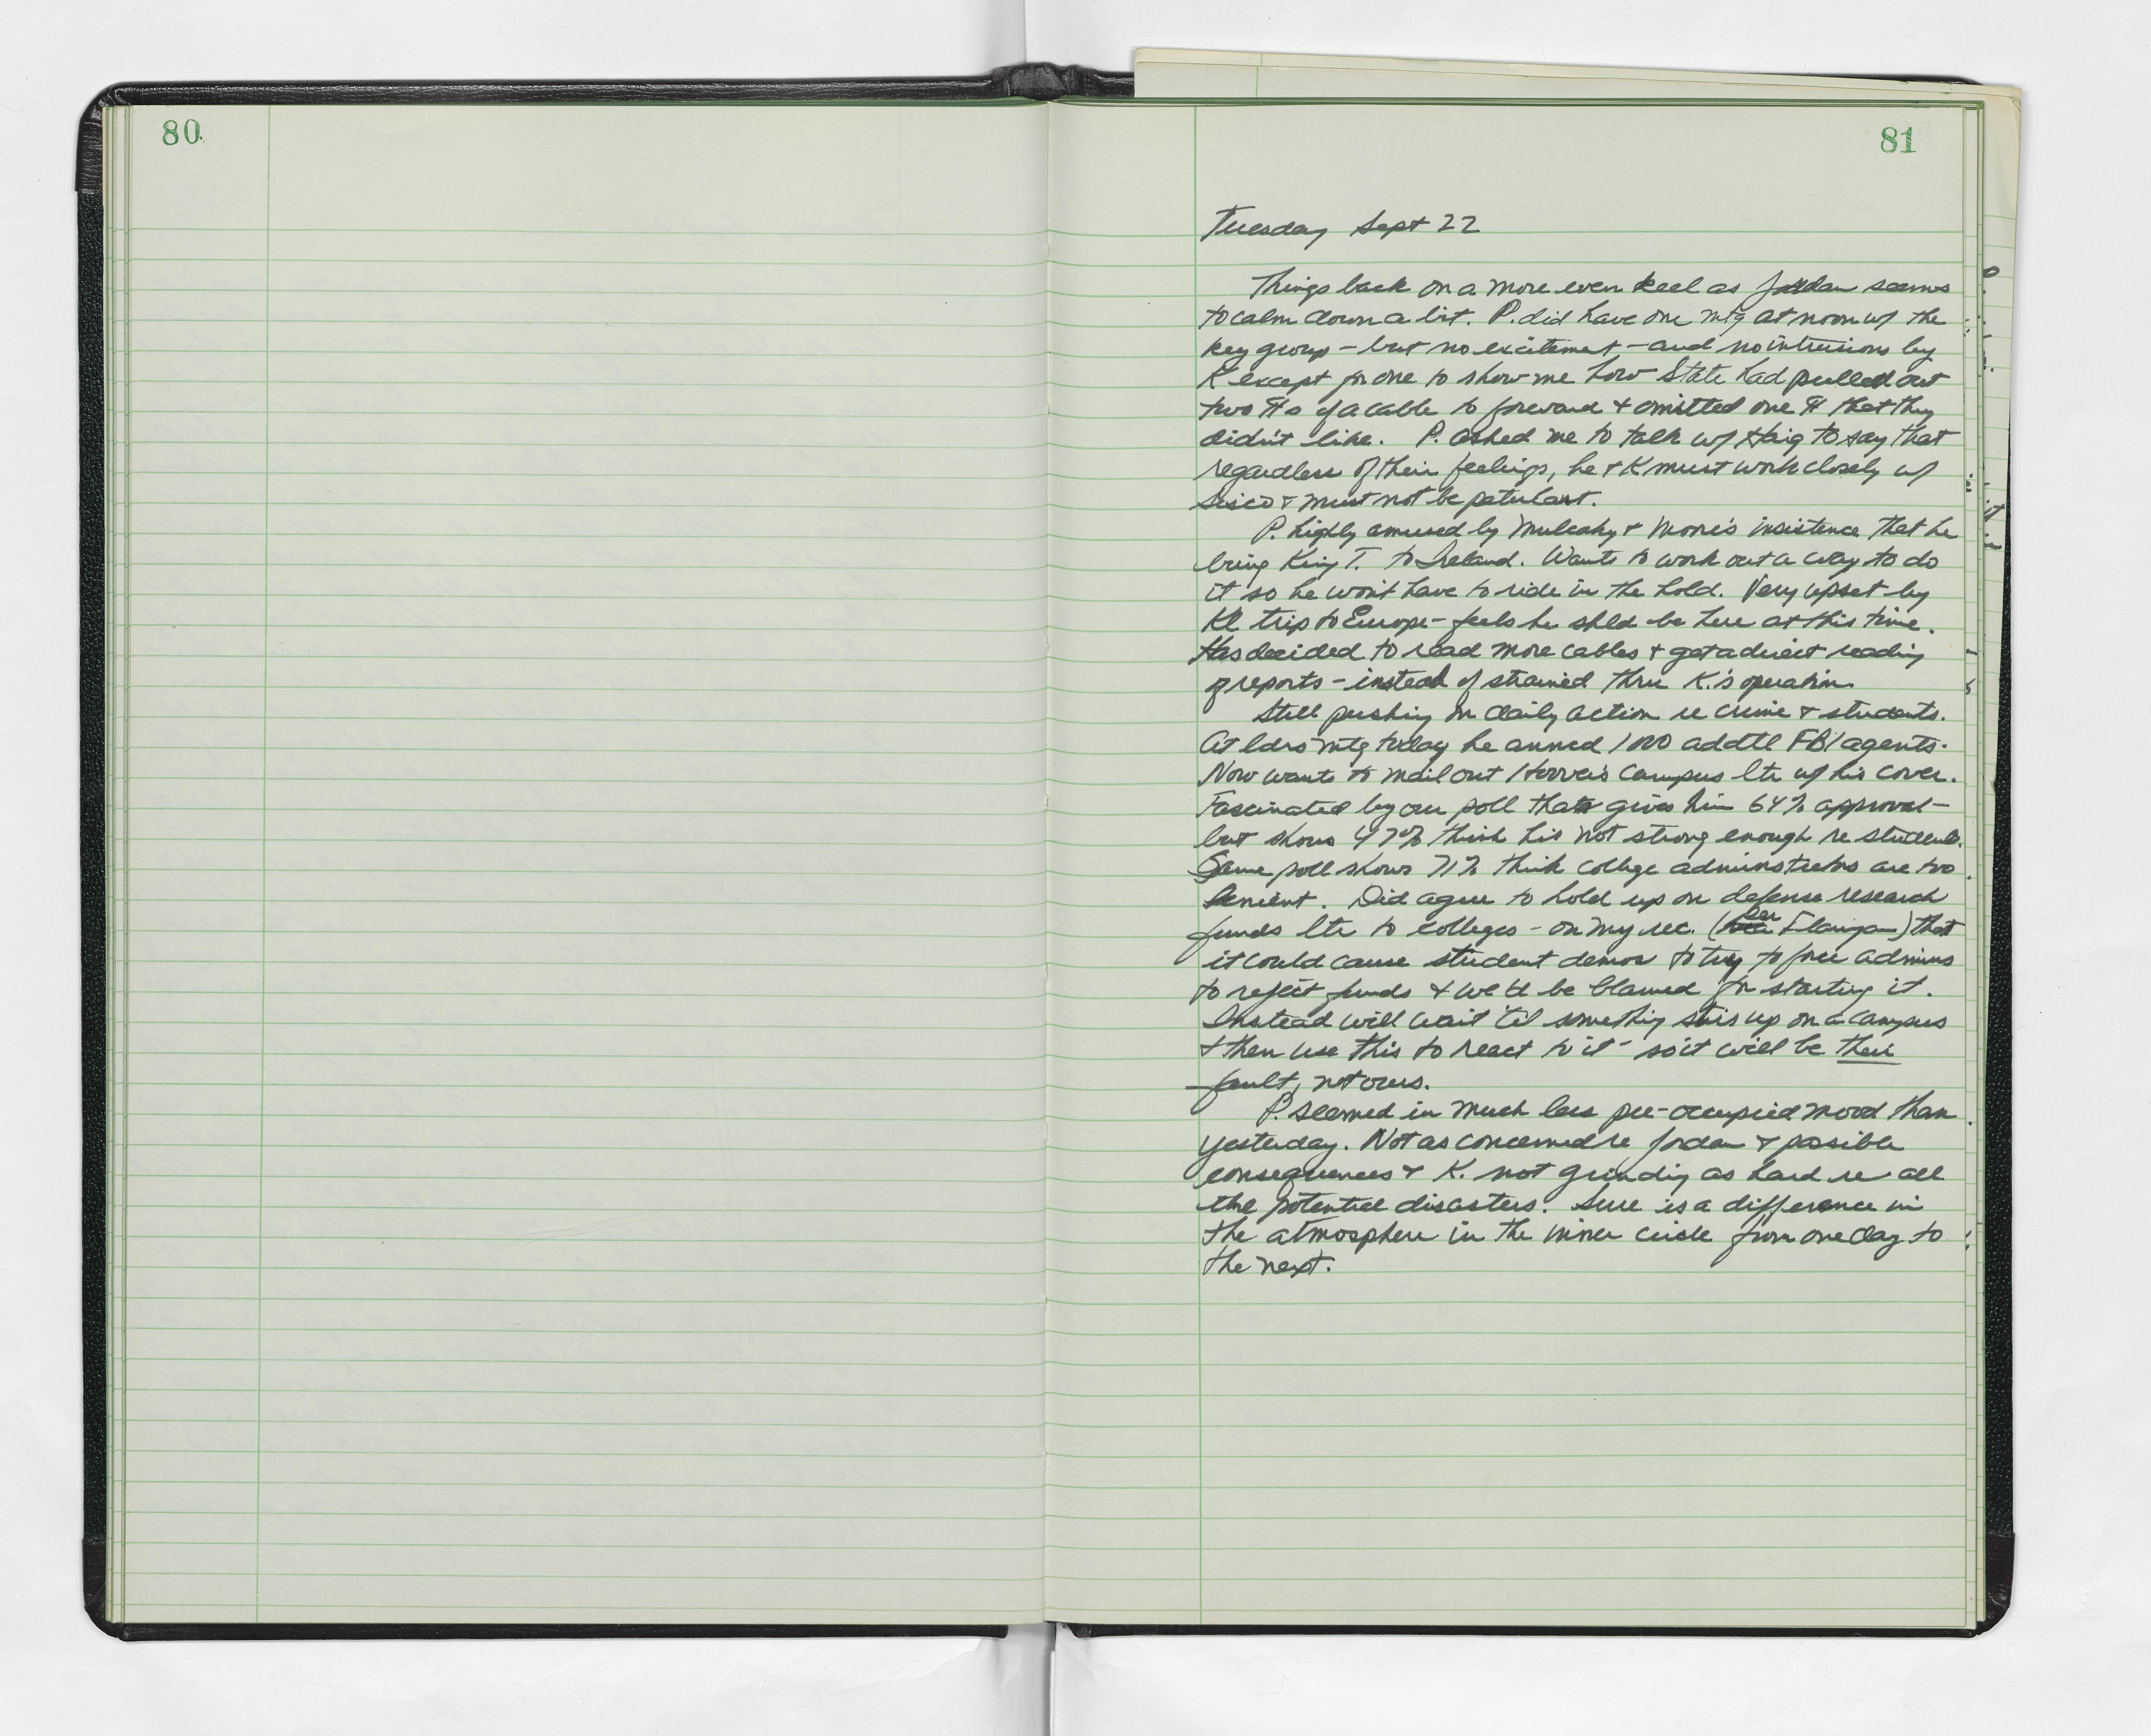 80
81
Tuesday Sept 22
Things back on a more even keel as Jordan seems
to calm down a bit. P. did have one mtg at noon w/ the
key group - but no excitement - and no intrusions by
K except for one to show me how State had pulled out
two ¶s of a cable to forward + omitted one ¶ that they
didn't like. P. asked me to talk w/ Haig to say that
regardless of their feelings, he + K must work closely w/
Sisco + must not be petulant.
P. highly amused by Mulcahy + More's insistence that he
bring King T. to Ireland. Wants to work out a way to do
it so he won't have to ride in the hold. Very upset by
trip to Europe - feels he shld be here at this time.
Has decided to read more cables + get a direct reading
of reports - instead of strained thru K.'s operation.
Still pushing on daily action re crime + students.
At ldrs mtg today he annced 1000 addtl FBI agents.
Now wants to mail out Hoover's campus ltr w/ his cover.
Fascinated by our poll that gives him 64% approval -
but shows 47% think he's not strong enough re students.
Same poll shows 71% think college adminstrators are too
lenient. Did agree to hold up on defense research
funds ltr to colleges - on my rec. (per Flanigan) that
it could cause student demos to try to force admins
to reject funds + we'd be blamed for starting it.
Instead will wait 'til something stirs up on a campus
+ then use this to react to it - so it will be their
fault, not ours.
P. seemed in much less pre-occupied mood than
yesterday. Not as concerned re Jordan + possible
consequences + K. not grinding as hard re all
the potential disasters. Sure is a difference in
the atmosphere in the inner circle from one day to
the next.